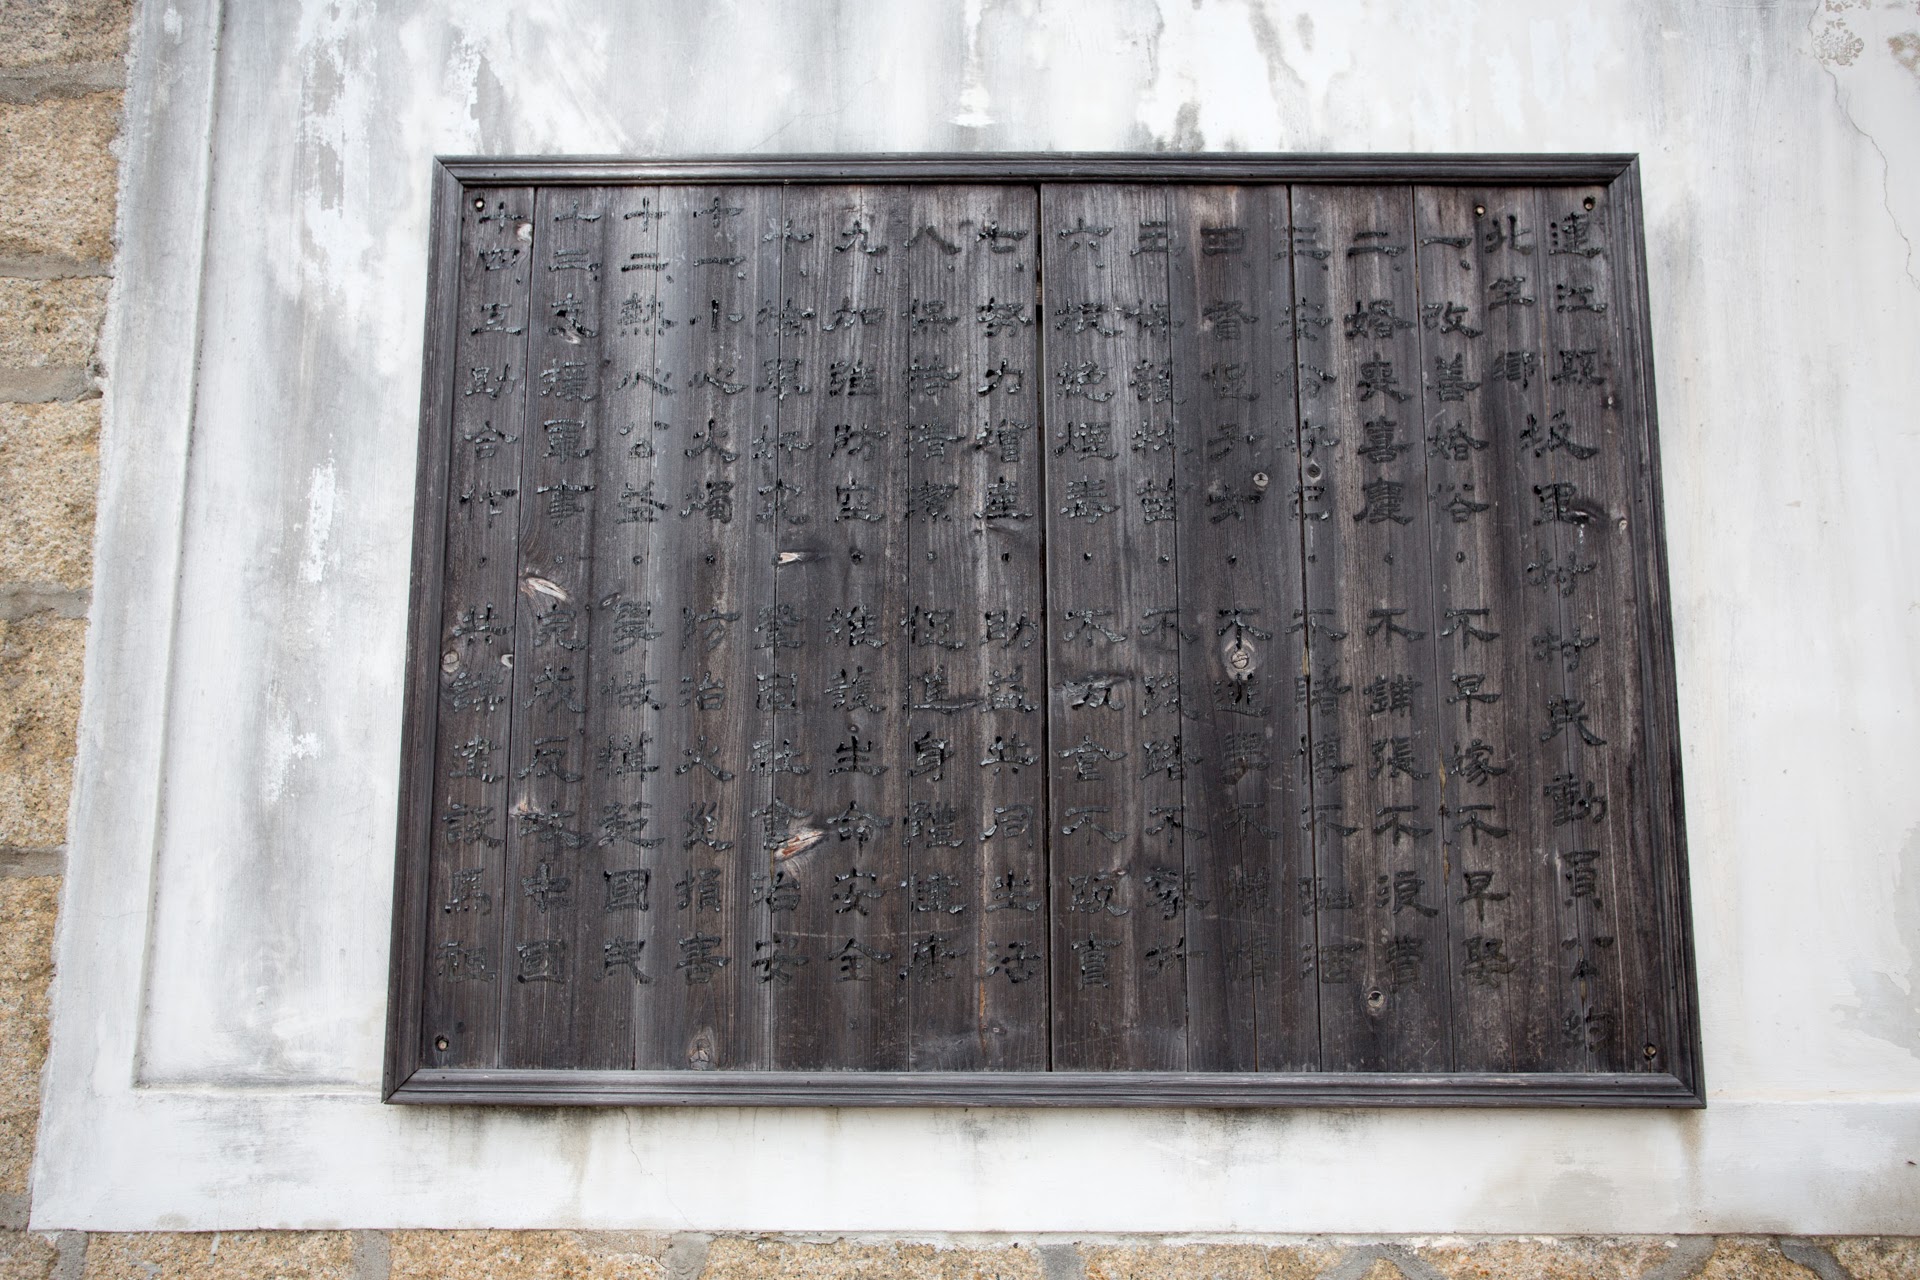 連江縣坂里村村民動員公約
北竿鄉
一、改善婚俗・不早嫁不早娶
二、婚喪喜慶・不鋪張不浪費
三、安份守己・不賭博不酗酒
四、督促子女・不逃學不懶惰
五、保護林苗・不踐踏不攀折
六、根絕煙毒・不吸食不販賣
七、努力增產・助益共同生活
八、保持清潔・促進身體健康
九、加強防空・維護生命安全
十、檢舉奸宄・鞏固社會治安
十一、小心火燭・防治火災損害
十二、熱心公益・爭做模範國民
十三、支援軍事・完成反攻中國
十四、互助合作・共謀建設馬祖